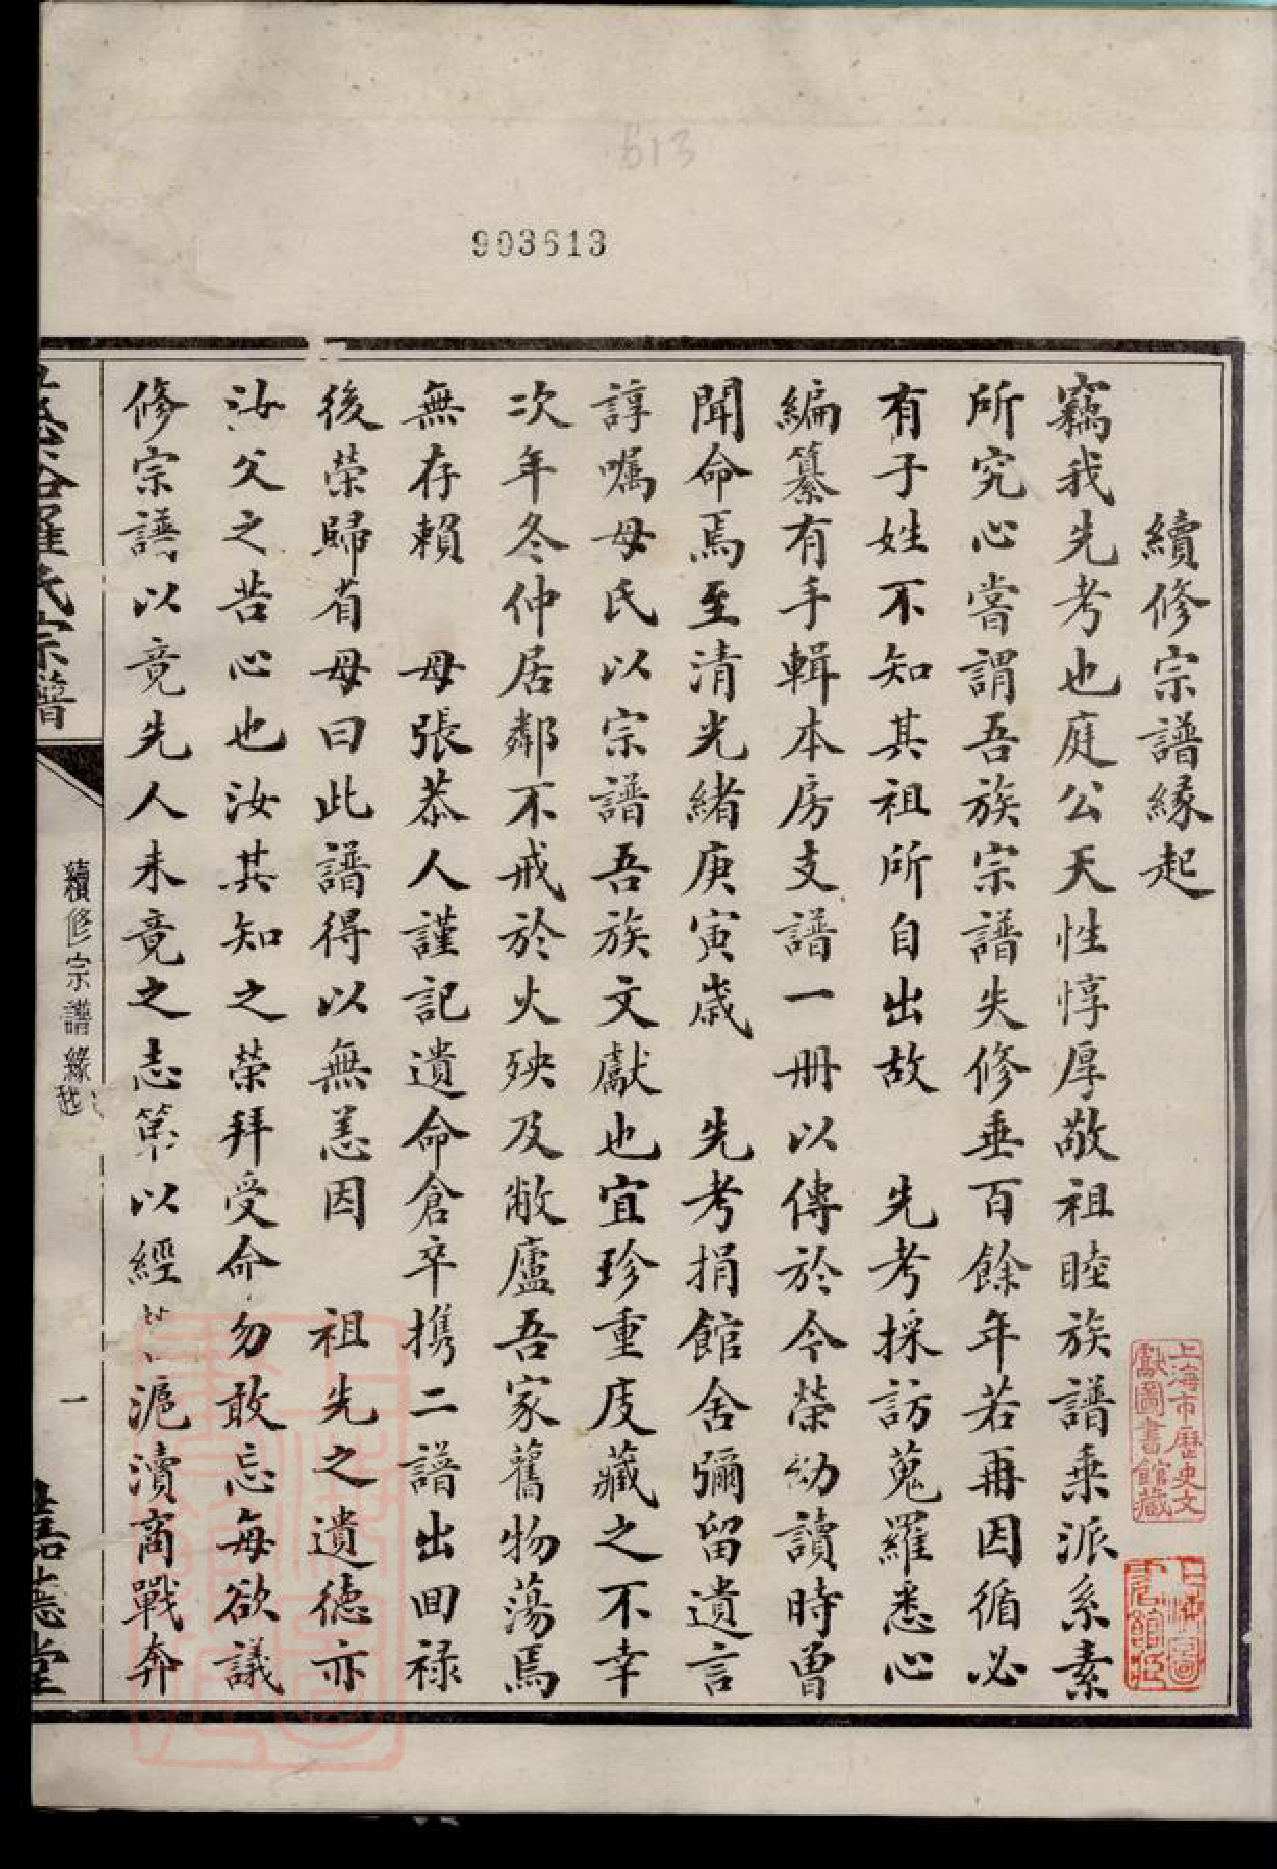 613
903613
續修宗譜緣起
竊我先考也庭公天性惇厚敬祖睦族譜乘派系素
所究心嘗謂吾族宗譜失修垂百餘年若再因循必
有子姓不知其祖所自出故　先考採訪蒐羅悉心
編纂有手輯本房支譜一冊以傳於今榮幼讀時曾
聞命焉至清光緒庚寅歲　先考捐館舍彌留遺言
諄囑母氏以宗譜吾族文獻也宜珍重庋藏之不幸
次年冬仲居鄰不戒於火殃及敝廬吾家舊物蕩焉
無存賴　母張恭人謹記遺命倉卒携二譜出回祿
後榮歸省母曰此譜得以無恙因　祖先之遺德亦
汝父之苦心也汝其知之榮拜受命勿敢忘每欲議
修宗譜以竟先人未竟之志第以經滬瀆商戰奔
羅氏宗譜
續修宗譜緣起
一
上海市歷史文獻圖書館藏
上海圖書館藏